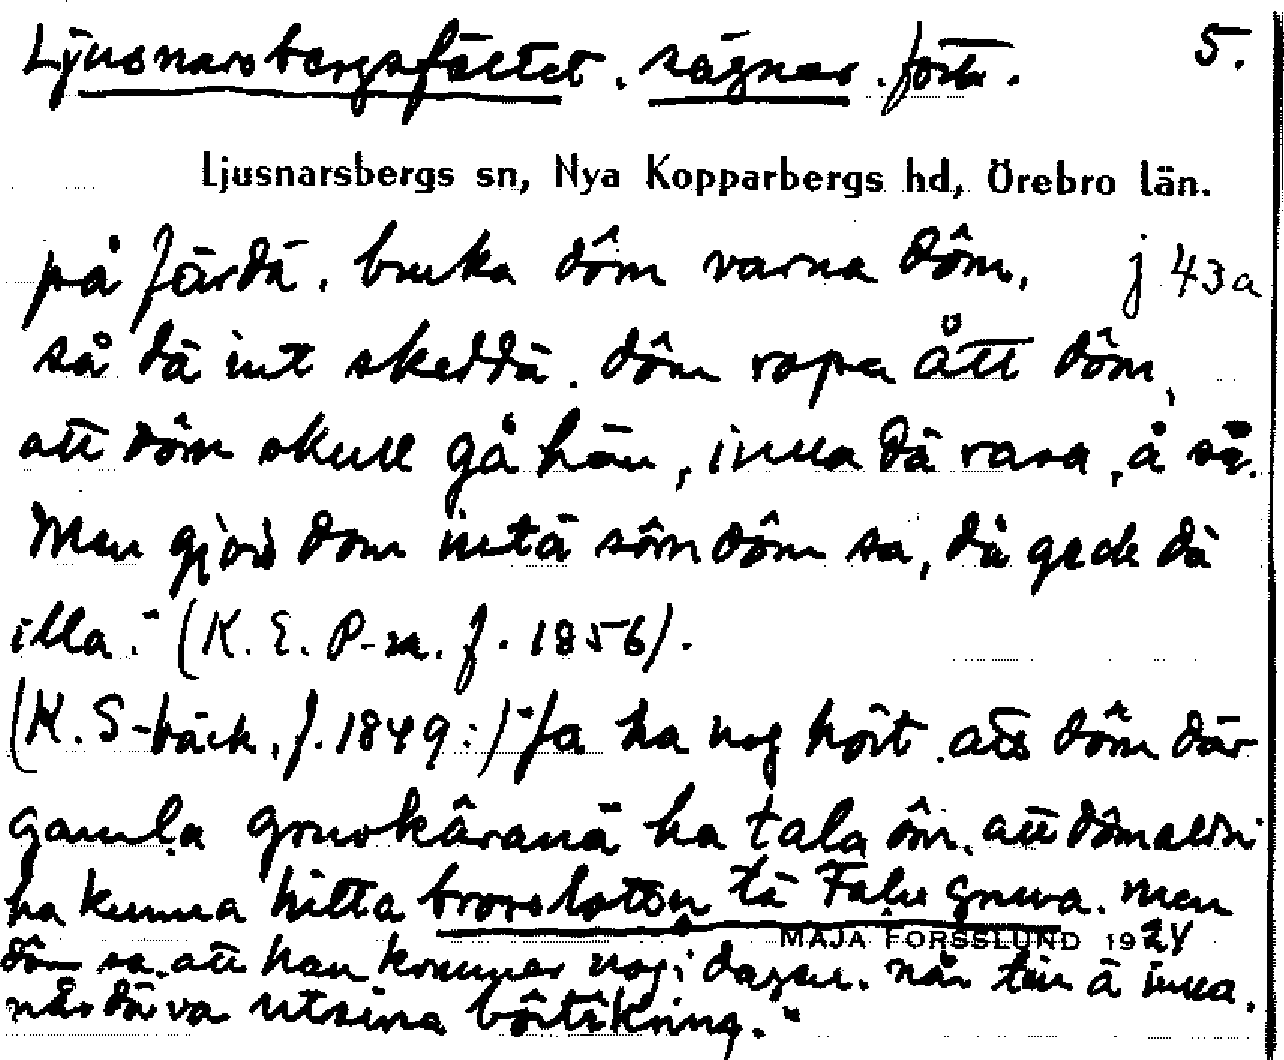 Ljusnarsbergsfältet. sägner. forts. 5.
Ljusnarsbergs sn, Nya Kopparbergs hd, Örebro län.
på färdä. bruka dôm varna dôm, j 43a
så dä int skeddä. dôm ropaått dôm,
att dôm skull gå hän, inna dä rasa, å så.
Men gjord dom intä sôm dôm sa, då geck dä
illa." (K. E. P-m. f. 1856).
(K. S-bäck, f. 1849:) "Ja ha nog hört att dôm där
gamla gruvkâranä ha tala ôm, att dôm aldri
ha kunna hitta brorslotten tä Falu gruva. Men
MAJA FORSSLUND 1924
dôm sa att han kommer nog i dagen. när tin ä inna.
når dä va